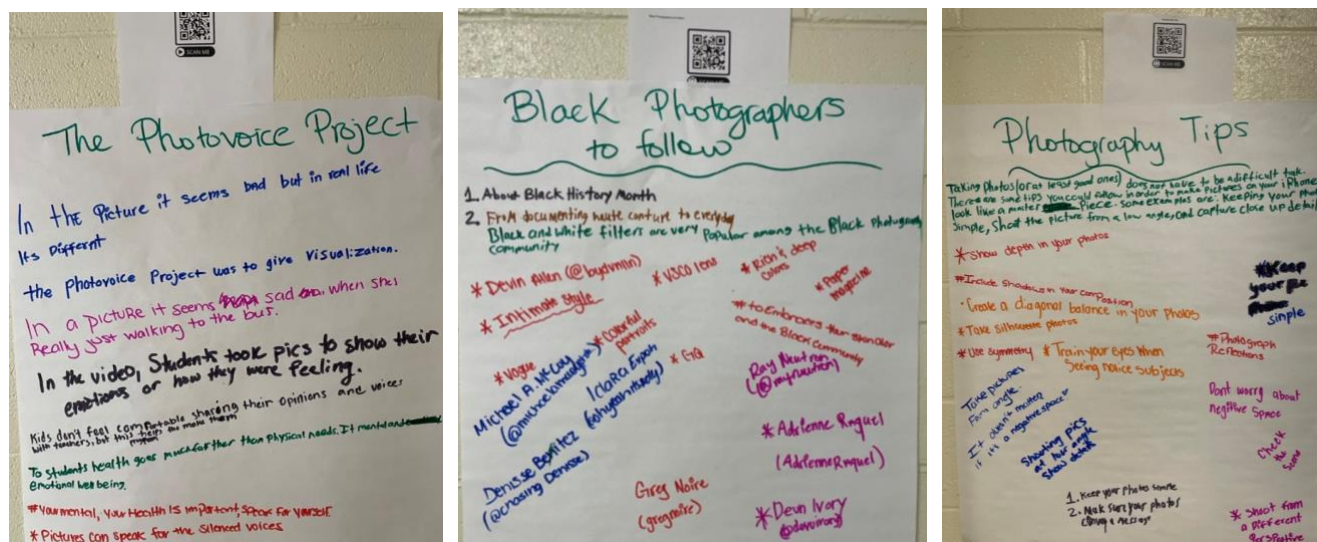 SCAN ME
The Photovoice Project
In the Picture it seems bad but in real life
Its Differnt
the photovoice Project was to give Visualization.
In a picture it seems sad when shes
Really just walking to the bus.
In the video, Students took pics to show their
emotions or how they were feeling.
Kids don't feel comfortable sharing their opinions and voices
with teachers, but this helps make them
To students health goes much farther than Physical needs. It mental and
emotional well being.
#Your mental, Your Health IS important, speak for yourself
* Pictures can speak for the silenced voices
Black Photographers
to follow
1. About Black History Month
2. From documenting haute couture to everyday
Black and white filters are very Popular among the Black Photography
community
* Devin Allen (@bydvnlln)
* VSCO lens
* Rich & deep
colors
* Paper
magazine
* Intimate Style
* Colorful
portraits
* to Embraces their
and the Black Community
* Vogue
* GQ
Michael A. McCoy
Ray Neutron
(@myrneutron)
Denisse Benitez
(@chasing Denisse)
* Adrienne Raquel
(Adrienne Raquel)
Greg Noire
(gregnoire)
* Deun Ivory
(@deunivory)
Photography Tips
Taking Photos (or at least good ones) does not have to be a difficult task.
There are some tips you could follow in order to make pictures on your iPhone
look like a master piece. Some examples are: Keeping your
Simple, Shoot the picture from a low angle, and capture close up
* Show depth in your photos
#Include Shadows in Your Composition
* Keep
your
simple
· Create a diagonal balance in your photos
* Take silhouette photos
* Use symmetry
* Train your Eyes When
Seeing notice subjects
# Photograph
Reflections
Take pictures
angle.
It doesn't matter
if it's a negative space
Shooting pics
at angle
show detail
Dont worry about
negitive Space
Check
the
1. Keep your photos simple
2. Mak sure your photos
a message
* Shoot from
a Different
Perspective